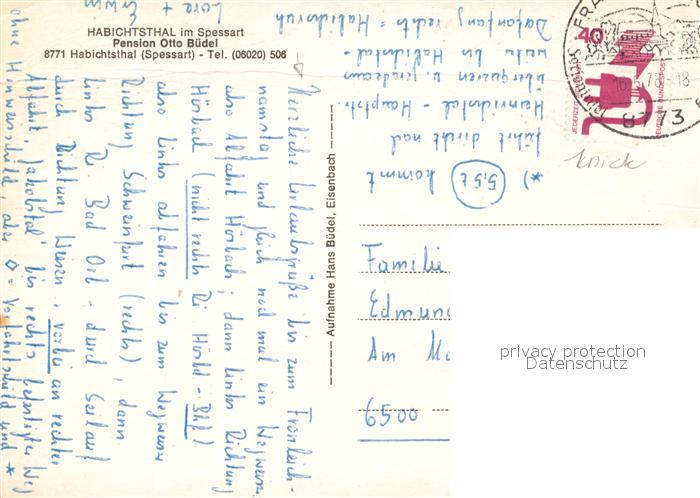 HABICHTSTHAL im Spessart
Pension Otto Büdel
8771 Habichtsthal (Spessart) - Tel. (06020) 506
Herzliche Urlaubsgrüße bis zum Fronleich-
namstag und gleich noch mal ein Wegweiser
also Abfahrt Hösbach; dann links Richtung
Hösbach (nicht rechts Ri Hösb - Bhf)
also links abfahren bis zum Wegweiser
Richtung Schweinfurt (rechts), dann
links Ri Bad Orb - durch Sailauf
durch Richtung Wiesen, vorbei an rechter
Abfahrt, Jakobstal bis rechts befestigter Weg
ohne Hinweisschild, aber ◇ = Vorfahrtschild und *
*) 5,5 t kommt
führt direkt nach
Heinrichstal - Hauptstr.
überqueren u. geradeaus
weiter bis Habichstal -
rechts = Habichsruh
Lore + Erwin
Aufnahme Hans Büdel, Eisenbach
40
JEDERZEIT
DEUTSCHE BUNDESPOST
8773
knick
Familie
Am
6500
privacy protection
Datenschutz